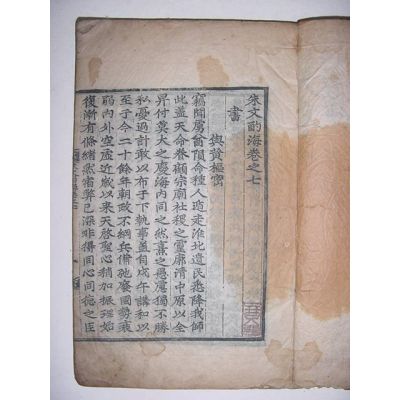 朱文酌海卷之七
書
與黃樞密
竊聞虜酋隕命種人遁走淮北遺民悉降我師
此蓋天命眷顧宗廟社稷之靈廓清中原以全
畀付莫大之慶海內同之然熹之愚慮獨不勝
私憂過計敢以布于下執事蓋自戊午講和以
至于今二十餘年朝政不綱兵備弛廢國勢衰
弱內外空虛近歲以來天啓聖心稍加振理始
復漸有條緒然宿弊已深非得同心同德之臣